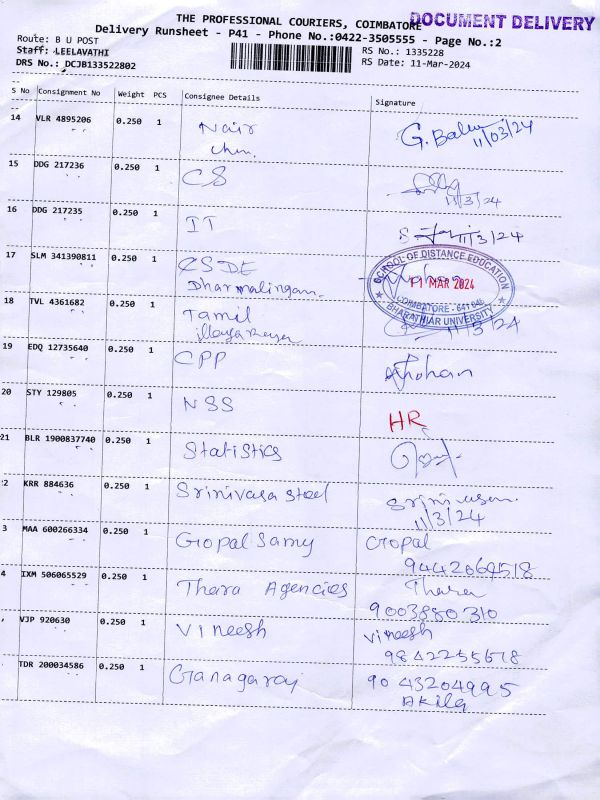 THE PROFESSIONAL COURIERS, COIMBATORE
DOCUMENT DELIVERY
Delivery Runsheet - P41 - Phone No.:0422-3505555 - Page No.:2
Route: B U POST
Staff: LEELAVATHI
DRS No.: DCJB133522802
RS No.: 1335228
RS Date: 11-Mar-2024
S No Consignment No Weight PCS Consignee Details Signature
14 VLR 4895206 0.250 1 Nair G. Balu
11/03/24
15 DDG 217236 0.250 1 CS
11/3/24
16 DDG 217235 0.250 1 IT
11/3/24
17 SLM 341390811 0.250 1 CSDE
Dharmalingam.
SCHOOL OF DISTANCE EDUCATION
11 MAR 2024
COIMBATORE - 641 046
BHARATHIAR UNIVERSITY
18 TVL 4361682 0.250 1 Tamil
11/3/24
19 EDQ 12735640 0.250 1 CPP
20 STY 129805 0.250 1 NSS HR
21 BLR 1900837740 0.250 1 Statistics
2 KRR 884636 0.250 1 Srinivasa steel
11/3/24
3 MAA 600266334 0.250 1 Gopal Samy Gopal
9442069518
4 IXM 506065529 0.250 1 Thara Agencies Thara
9003880310
VJP 920630 0.250 1 Vineesh Vineesh
9842255678
TDR 200034586 0.250 1 Ganagaray 9043204995
Akila